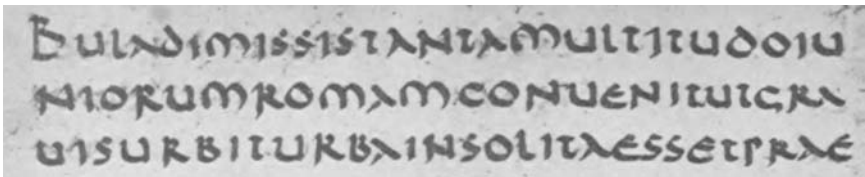 BULADIMISSISTANTAMULTITUDOIU
NIORUMROMAMCONUENITUTGRA
UISURBITURBAINSOLITAESSETPRAE